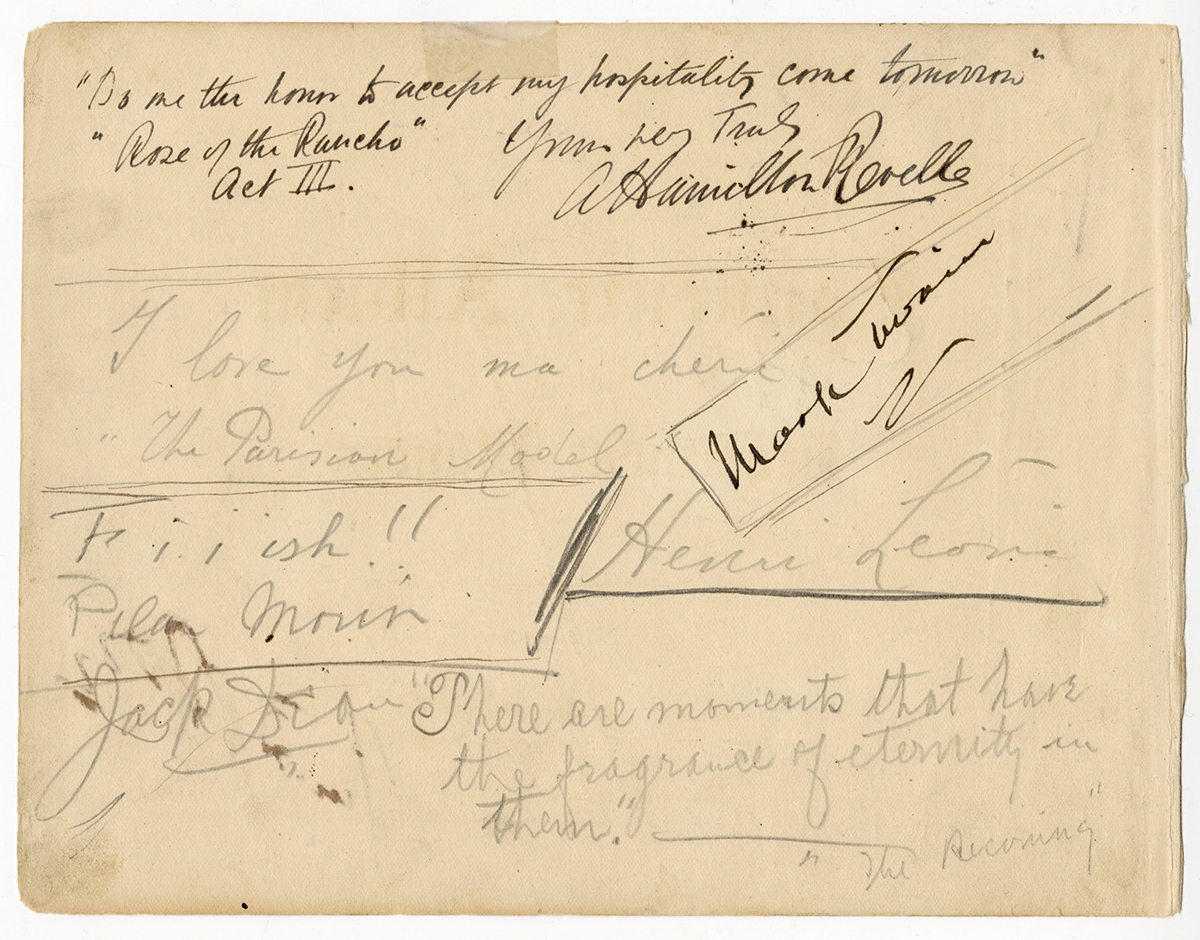 "Do me the honor to accept my hospitality come tomorrow"
"Rose of the Rancho"
Act III.
Yours very Truly
A Hamilton Revelle
I love you ma cherie
"The Parisian Model"
Mark Twain
Henri Leoni
F i i ish!!
Pilar Morin
Jack Dean
"There are moments that have
the fragrance of eternity in
them."
"The Reconing"